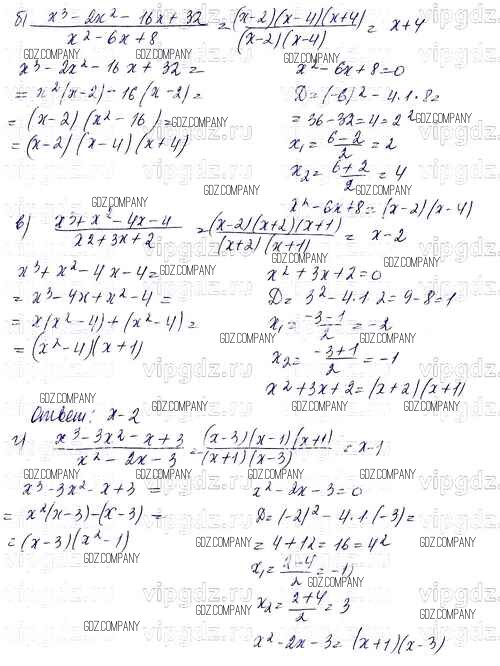 б) x³ - 2x² - 16x + 32 / x² - 6x + 8 = (x-2)(x-4)(x+4) / (x-2)(x-4) = x+4
x³ - 2x² - 16x + 32 =
= x²(x-2) - 16(x-2) =
= (x-2)(x² - 16) =
= (x-2)(x-4)(x+4)
x² - 6x + 8 = 0
D = (-6)² - 4·1·8 =
= 36 - 32 = 4 = 2²
x₁ = 6-2 / 2 = 2
x₂ = 6+2 / 2 = 4
x² - 6x + 8 = (x-2)(x-4)
в) x³ + x² - 4x - 4 / x² + 3x + 2 = (x-2)(x+2)(x+1) / (x+2)(x+1) = x-2
x³ + x² - 4x - 4 =
= x³ - 4x + x² - 4 =
= x(x² - 4) + (x² - 4) =
= (x² - 4)(x+1)
x² + 3x + 2 = 0
D = 3² - 4·1·2 = 9 - 8 = 1
x₁ = -3-1 / 2 = -2
x₂ = -3+1 / 2 = -1
x² + 3x + 2 = (x+2)(x+1)
Ответ: x-2
г) x³ - 3x² - x + 3 / x² - 2x - 3 = (x-3)(x-1)(x+1) / (x+1)(x-3) = x-1
x³ - 3x² - x + 3 =
= x²(x-3) - (x-3) =
= (x-3)(x² - 1)
x² - 2x - 3 = 0
D = (-2)² - 4·1·(-3) =
= 4 + 12 = 16 = 4²
x₁ = 2-4 / 2 = -1
x₂ = 2+4 / 2 = 3
x² - 2x - 3 = (x+1)(x-3)
GDZ.COMPANY
vipgdz.ru